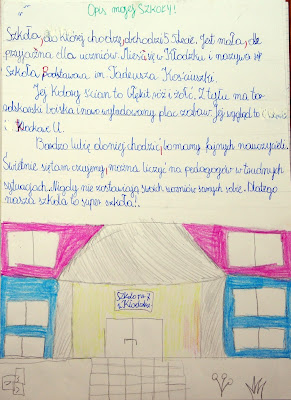 Opis mojej SZKOŁY!
Szkoła, do której chodzę, dchodzi 5 Stacie. Jest mała, ale
przyjazna dla uczniów. Mieści się w Kłodzku i nazywa się
Szkoła Podstawowa im. Tadeusza Kościuszki.
Jej Kolory ścian to błękit, róż i żółć. Z tyłu ma
boiska i nowo wybudowany plac zabaw. Jej wygląd to
Bardzo lubię do niej chodzić, bo mamy fajnych nauczycieli.
Świetnie się tam czujemy, i można liczyć na pedagogów w trudnych
sytuacjach. Nigdy nie zostawiają swoich uczniów samych sobie. Dlatego
nasza szkoła to super szkoła!.
Szkoła nr 2
w Kłodzku